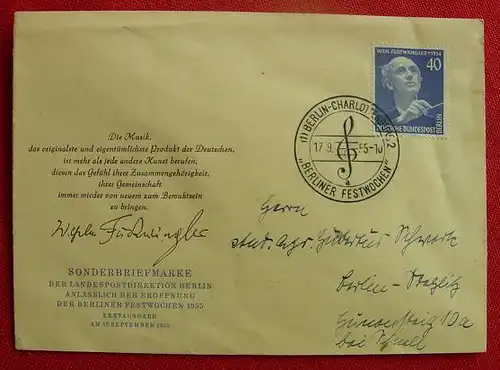 WILH. FURTWÄNGLER † 1954
40
DEUTSCHE BUNDESPOST
BERLIN
(1) BERLIN-CHARLOTTENBURG 2
17.9. 55-10
"BERLINER FESTWOCHEN"
a
Die Musik,
das originalste und eigentümlichste Produkt der Deutschen,
ist mehr als jede andere Kunst berufen,
diesen das Gefühl ihrer Zusammengehörigkeit,
ihrer Gemeinschaft
immer wieder von neuem zum Bewußtsein
zu bringen.
Wilhelm Furtwängler
SONDERBRIEFMARKE
DER LANDESPOSTDIREKTION BERLIN
ANLÄSSLICH DER ERÖFFNUNG
DER BERLINER FESTWOCHEN 1955
ERSTAUSGABE
AM 17. SEPTEMBER 1955
Herrn
Hubertus
Berlin-Steglitz
10a
bei